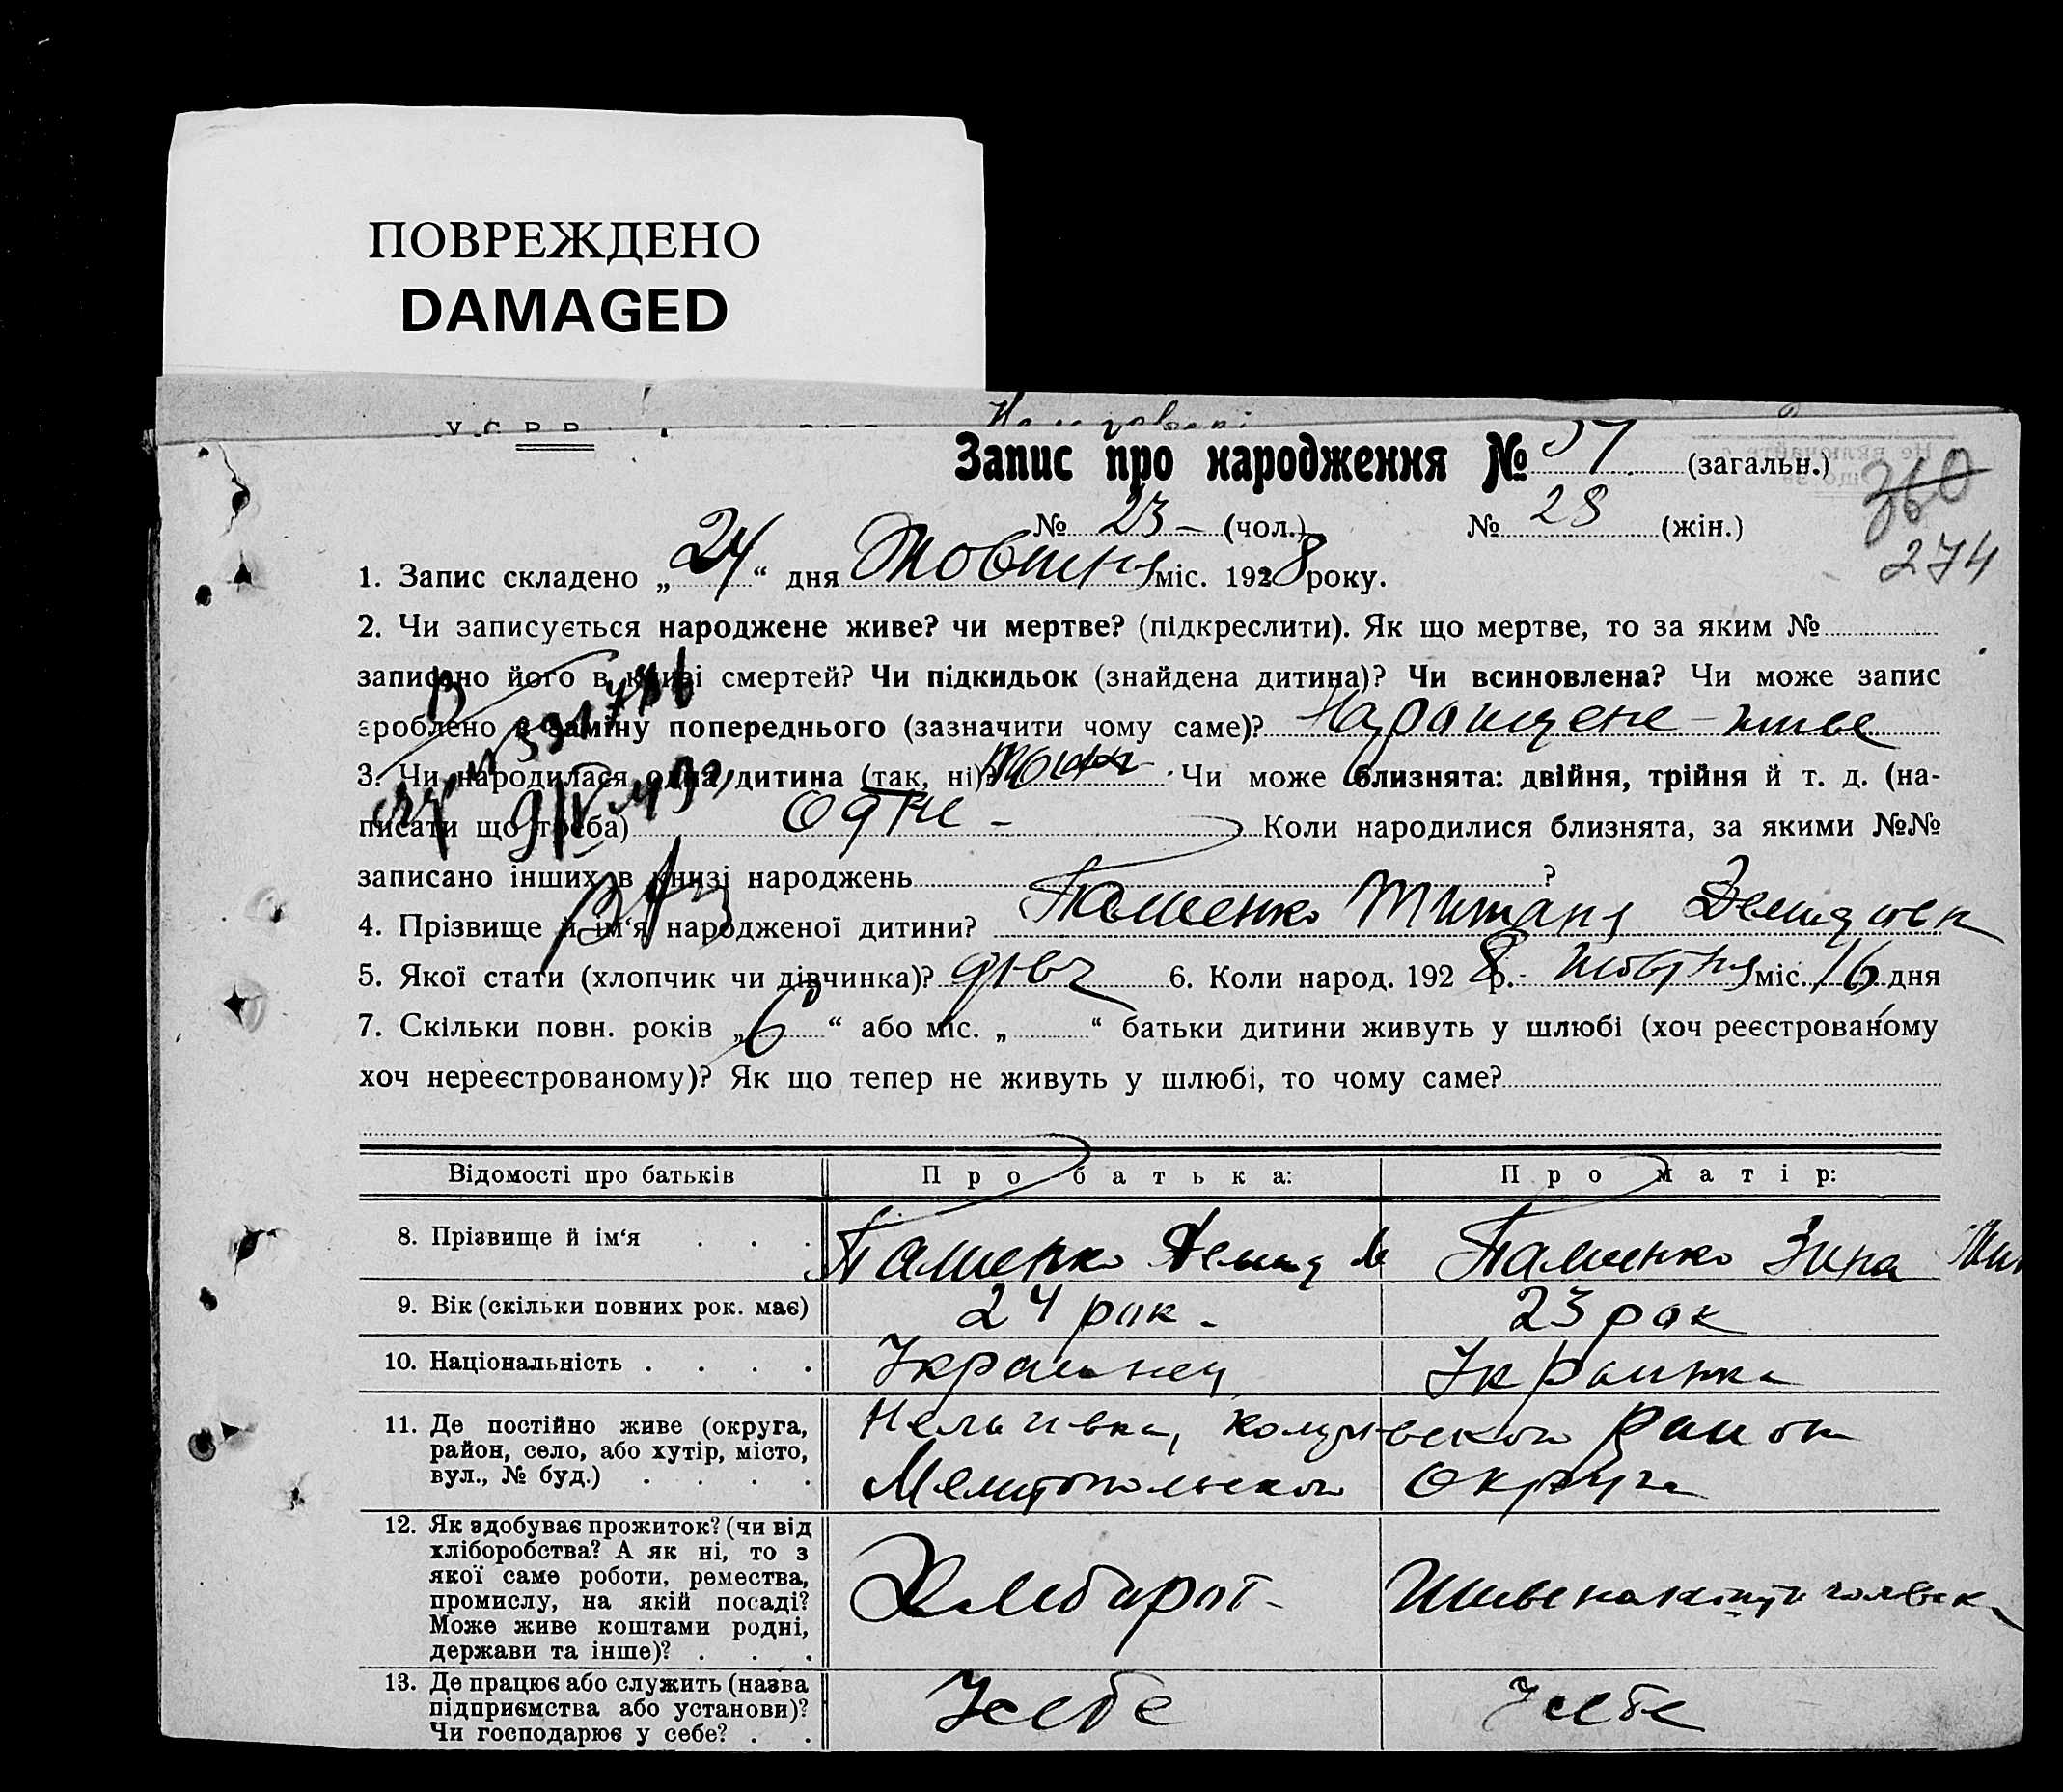 ПОВРЕЖДЕНО
DAMAGED
У.С.Р.Р.
Запис про народження № 51 (загальн.)
360
№ 23 – (чол.) № 28 (жін.)
274
1. Запис складено „24“ дня Жовтня міс. 1928 року.
2. Чи записується народжене живе? чи мертве? (підкреслити). Як що мертве, то за яким №
записано його в книзі смертей? Чи підкидьок (знайдена дитина)? Чи всиновлена? Чи може запис
зроблено в заміну попереднього (зазначити чому саме)?
3. Чи народилася одна дитина (так, ні)? Чи може близнята: двійня, трійня й т. д. (на-
писати що треба) одне – Коли народилися близнята, за якими №№
записано інших в книзі народжень ?
4. Прізвище й ім‘я народженої дитини?
5. Якої стати (хлопчик чи дівчинка)? дівч 6. Коли народ. 1928 р. жовтня міс. 16 дня
7. Скільки повн. років „6“ або міс. „ “ батьки дитини живуть у шлюбі (хоч реєстрованому
хоч нереєстрованому)? Як що тепер не живуть у шлюбі, то чому саме?
Відомості про батьків Про батька: Про матір:
8. Прізвище й ім‘я . . . Пашенко Демид Пашенко Зина
9. Вік (скільки повних рок. має) 24 рок. 23 рок
10. Національність . . . . Украинец Украинка
11. Де постійно живе (округа,
район, село, або хутір, місто,
вул., № буд.) . . . .
район
Мелитопольской Округа
12. Як здобуває прожиток? (чи від
хліборобства? А як ні, то з
якої саме роботи, ремества,
промислу, на якій посаді?
Може живе коштами родні,
держави та інше)? . . .
Хлебароб
13. Де працює або служить (назва
підприємства або установи)?
Чи господарює у себе? . .
У себе У себе